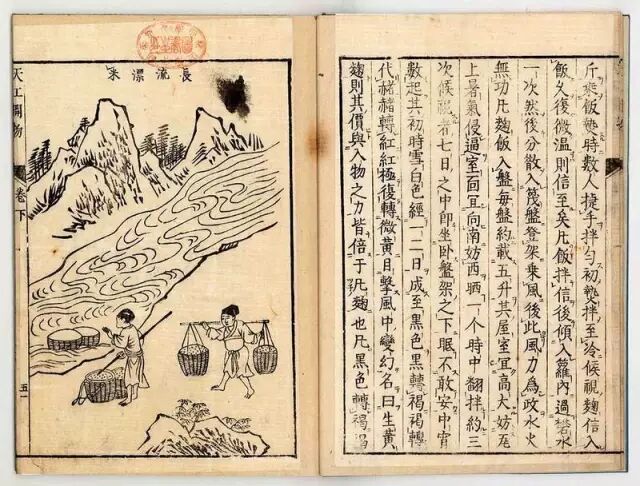 斤乘飯熱時數人捷手拌勻初熱拌至冷候視麴信入
飯久後微溫則信至矣凡飯拌信後傾入籮內過礬水
一次然後分散入篾盤登架乘風後此風力爲政水火
無功凡麴飯入盤每盤約載五升其屋室宜高大妨瓦
上暑氣侵逼室面宜向南妨西晒一個時中翻拌約三
次候視者七日之中卽坐臥盤架之下眠不敢安中宵
數起其初時雪白色經一二日成至黑色黑轉褐褐轉
代赭赭轉紅紅極復轉微黃目擊風中變幻名曰生黃
麴則其價與入物之力皆倍于凡麴也凡黑色轉褐褐
長流漂米
天工開物
卷下
五一